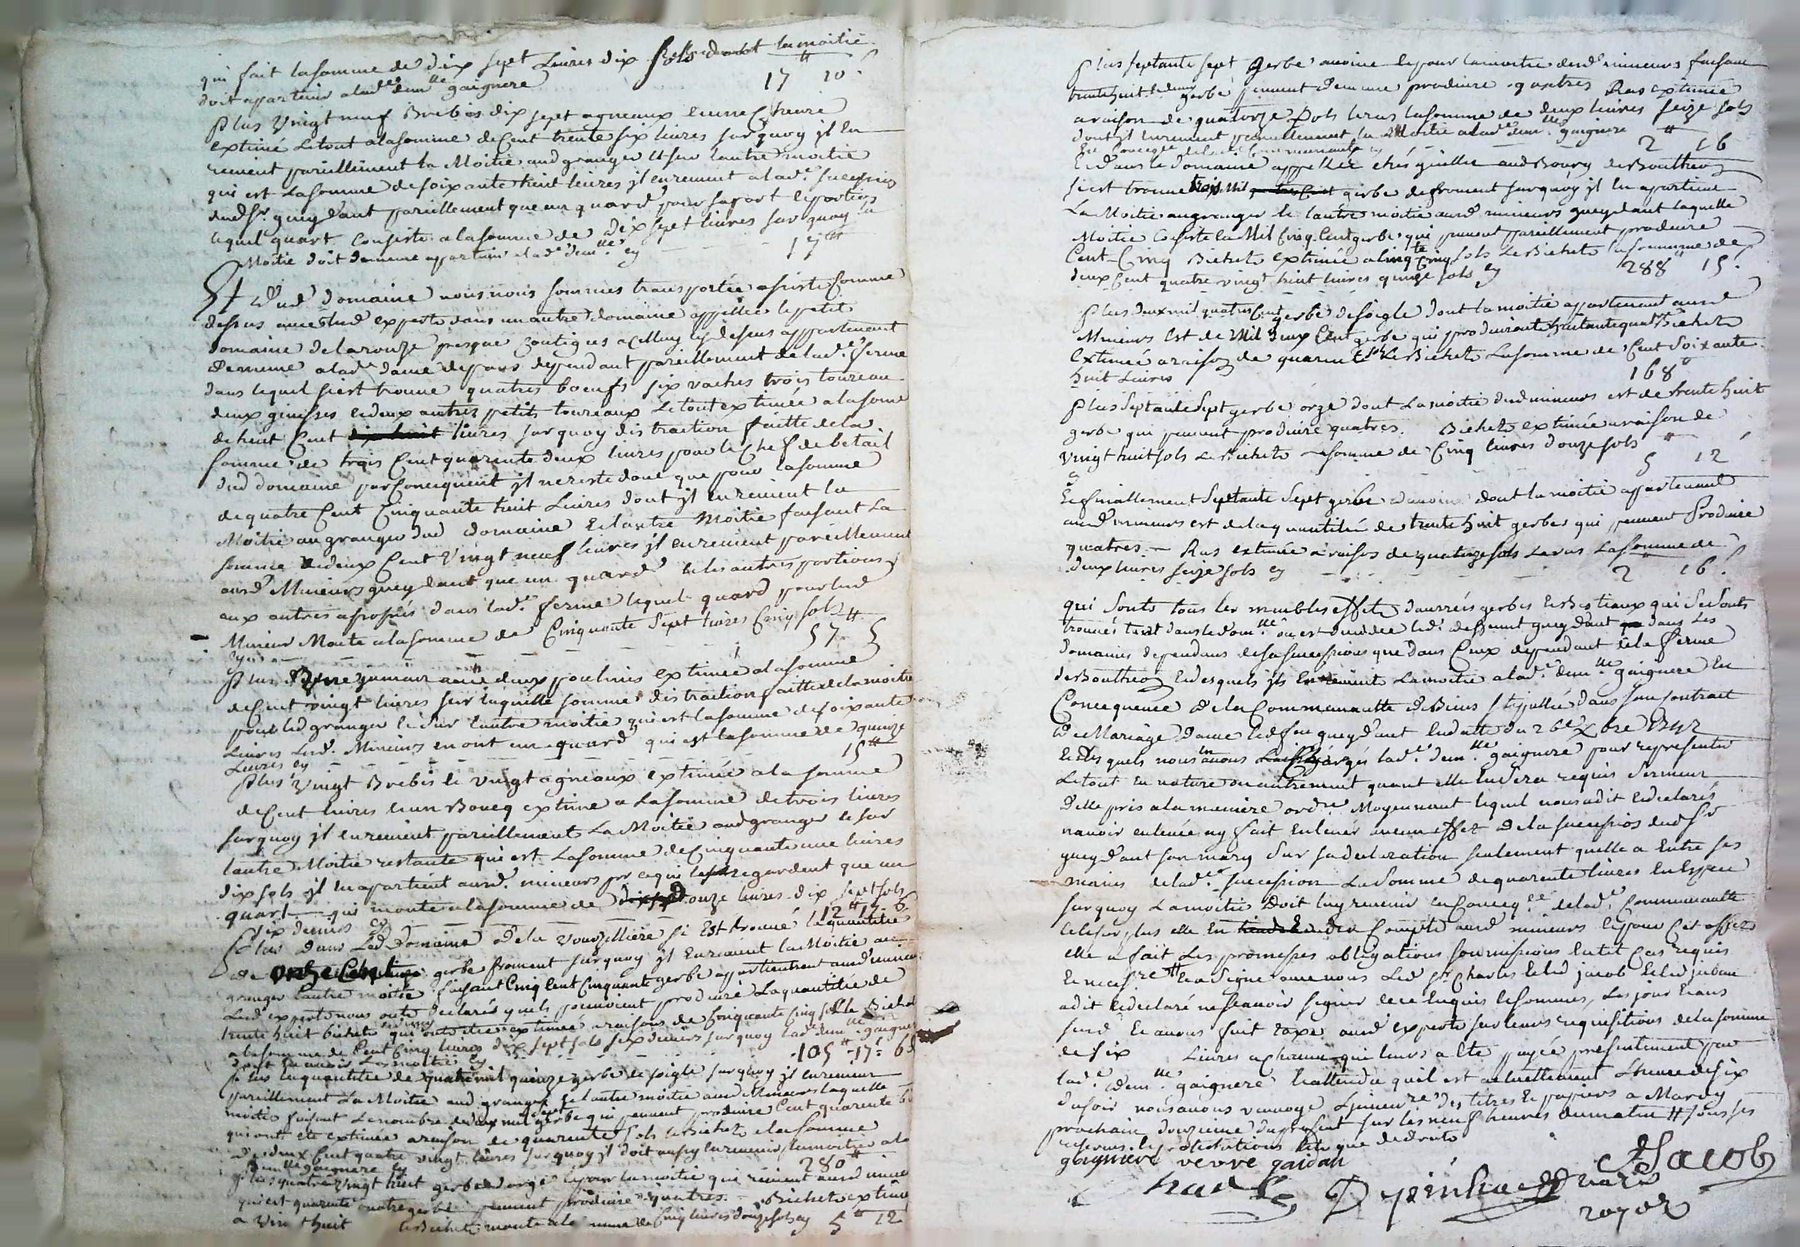 qui fait la somme de dix sept Livres dix sols dont la moitié
doit appartenir a lad.e dem.lle gaignere 17# 10s
Plus vingt neuf Brebis dix sept agneaux
extimé Le tout a la somme de Cent trente six livres sur quoy jl en
revient pareillement la Moitié aud granger Et sur l'autre moitié
qui est La somme de soixante huit livres jl en revient a lad.e succession
dud Sr gueydant pareillement que un quard pour sa part et portion
lequel quart Consiste a la somme de Dix sept livres sur quoy la
Moitié doit de meme appartenir a lad.e dem.lle cy 17#
Et dud domaine nous nous sommes transportés assisté Comme
dessus avec lesd experts dans un autre domaine appellée le petit
domaine de la rouze presque Contigus a Celluy cy dessus appartenant
de meme a lad.e dame depars dependant pareillement de lad.e ferme
dans lequel s'est trouvé quatres boeufs six vaches trois toureau
deux genisses et deux autres petits toureaux Le tout extimée a la somme
de huit Cent livres sur quoy distraction faitte de la
somme de trois Cent quarente deux livres pour le Chef de betail
dud domaine par Concequent jl ne reste donc que pour la somme
de quatre Cent Cinquante huit Livres dont jl en revient la
Moitié au granger dud domaine Et l'autre Moitié faisant La
somme de deux Cent Vingt neuf livres jl en revient pareillement
aud Mineurs gueydant que un quard et les autres portions
aux autres associés dans lad.e ferme lequel quard pour lesd
Mineur Monte a la somme de Cinquante Sept livres Cinq sols
cy 57# 5
Plus une jument avec deux poulins extimée a la somme
de Cent vingt livres sur laquelle somme distraction faitte de la moitié
pour led granger et sur l'autre moitié qui est la somme de soixante
Livres Lesd. Mineurs en ont un quard qui est la somme de quinze
Livres cy 15#
Plus Vingt Brebis et vingt agneaux extimée a la somme
de Cent livres et un Boucq extimé a La somme de trois livres
sur quoy jl en revient pareillement La Moitié aud granger et sur
l'autre Moitié restante qui est La somme de Cinquante une livres
dix sols jl n'en apartient aud. mineurs que un
quart qui monte a la somme de onze livres dix sept sols
six deniers cy 12# 17. 6
Plus dans Led Domaine de la s'est trouvé la quantité
de onze Cent gerbe froment sur quoy jl En revient la Moitié au
granger L'autre moitié faisant Cinq Cent Cinquante gerbe appartiennent aud mineurs
Led experts nous onts declarés quels pouvoient produire La quantité de
trente huit bichets qui onts été extimée a raison de Cinquante Cinq sols le Bichet
a la somme de Cent Cinq livres dix sept sols six deniers sur quoy lad.e dem.lle gaignere
doit en avoir La moitié cy 105# 17s 6d
Plus la quantité de quatre mil quinze gerbe de soigle sur quoy jl en revient
pareillement La Moitié aud granger et L'autre moitié aud Mineurs laquelle
moitié faisant Le nombre de deux mil sept gerbe qui peuvent produire Cent quarente
qui ont été extimée a raison de quarente sols le Bichet a la somme
de deux Cent quatre vingt livres sur quoy jl doit aussy en revenir la moitié a la
dem.lle gaignere cy 280#
Plus quatre vingt huit gerbe d'orge et pour la moitié que revient aud mineurs
qui est quarente quatre gerbe peuvent produire quatres Bichets extimé
a vin t huit le Bichet monte a la somme de Cinq livres douze sols cy 5# 12
Plus septante sept gerbe avoine et pour la moitié desd mineurs faisant
trente huit et demy gerbe peuvent de meme produire quatres Ras extimée
a raison de quatorze sols le ras la somme de deux livres seize sols
dont jl en revient pareillement la Moitié a lad.e dem.lle gaignere
En Concequence de la Communauté cy 2# 16
Et dans le domaine appellée chés guillet aud Bourg de Boutheon
s'est trouvé trois mil gerbe de froment sur quoy jl En apartient
La Moitié au granger et l'autre moitié aud mineurs gueydant laquelle
Moitié Consiste En Mil Cinq Cent gerbe qui peuvent pareillement produire
Cent Cinq Bichets extimée a Cinquante Cinq sols le Bichet la somme de
deux Cent quatre vingt huit livres quinze sols cy 288# 15s
Plus deux mil quatres Cent gerbe de soigle dont la moitié apartenant aud
Mineurs Est de Mil deux Cent gerbe qui produiront huitante quatre Bichets
extimée a raison de quarente sols le Bichet la somme de Cent soixante
huit Livres 168#
Plus Septante Sept gerbe orge dont La moitié dud mineurs est de trente huit
gerbe qui peuvent produire quatres Bichets extimée a raison de
vingt huit sols le Bichet la somme de Cinq livres douze sols
cy 5# 12s
Et finallement Septante Sept gerbe d'avoine dont la moitié appartenant
aud mineurs est de la quantité de trente huit gerbes qui peuvent Produire
quatres Ras extimée a raison de quatorze sols Le ras La somme de
deux livres seize sols cy 2# 16s
qui Sonts tous les meubles effets danrrées gerbes Et Bestiaux qui se Sonts
trouvés tant dans le dom.lle ou est decedée led. deffunt gueydant que dans Les
domaines dependans de sa succession que dans Ceux dependant de la ferme
de Boutheon Et desquels jls En revient La moitié a lad.e dem.lle gaignere En
Concequence de la Communautté de Biens stipullée dans son Contrait
de Mariage d'avec led feu gueydant En datte du 26e Xbre 1742
Et desquels nous en avons Chargés lad.e dem.lle gaignere pour representer
Le tout en nature ou autrement quant elle En Sera requis
a la maniere ord.re Moyennant lequel nous a dit et declarés
n'avoir enlevée ny fait Enlever aucun effet de la succession dud Sr
gueydant son mary Sur sa declaration seulement quelle a Entre ses
mains de lad.e succession La Somme de quarente livres En Espece
sur quoy La moitié Doit luy revenir en Conceq.ce de lad.e Communautté
et le surplus elle En Compte aud mineurs Et pour Cet effet
elle a fait Les promesses obligations soumissions En tel Cas requis
Et necess.re Et a Signé avec nous Led Sr Charles Et led jacob Et led
a dit et declaré ne sçavoir signer de ce Enquis et sommés, Les jour Et ans
susd Et avons fait taxe aud experts sur leurs requisitions de la somme
de six Livres a chacun qui leurs a Eté payée presentement par
lad.e dem.lle gaignere Et attendu qu'il est actuellement L'heure de six
du soir nous avons renvoyé L'jnventaire des titres Et papiers a Mardy
prochain douzieme du present sur les neuf heures du matin # sous les
protestations tel que de droit
gaignere vevve gaidan
Jacob
royer